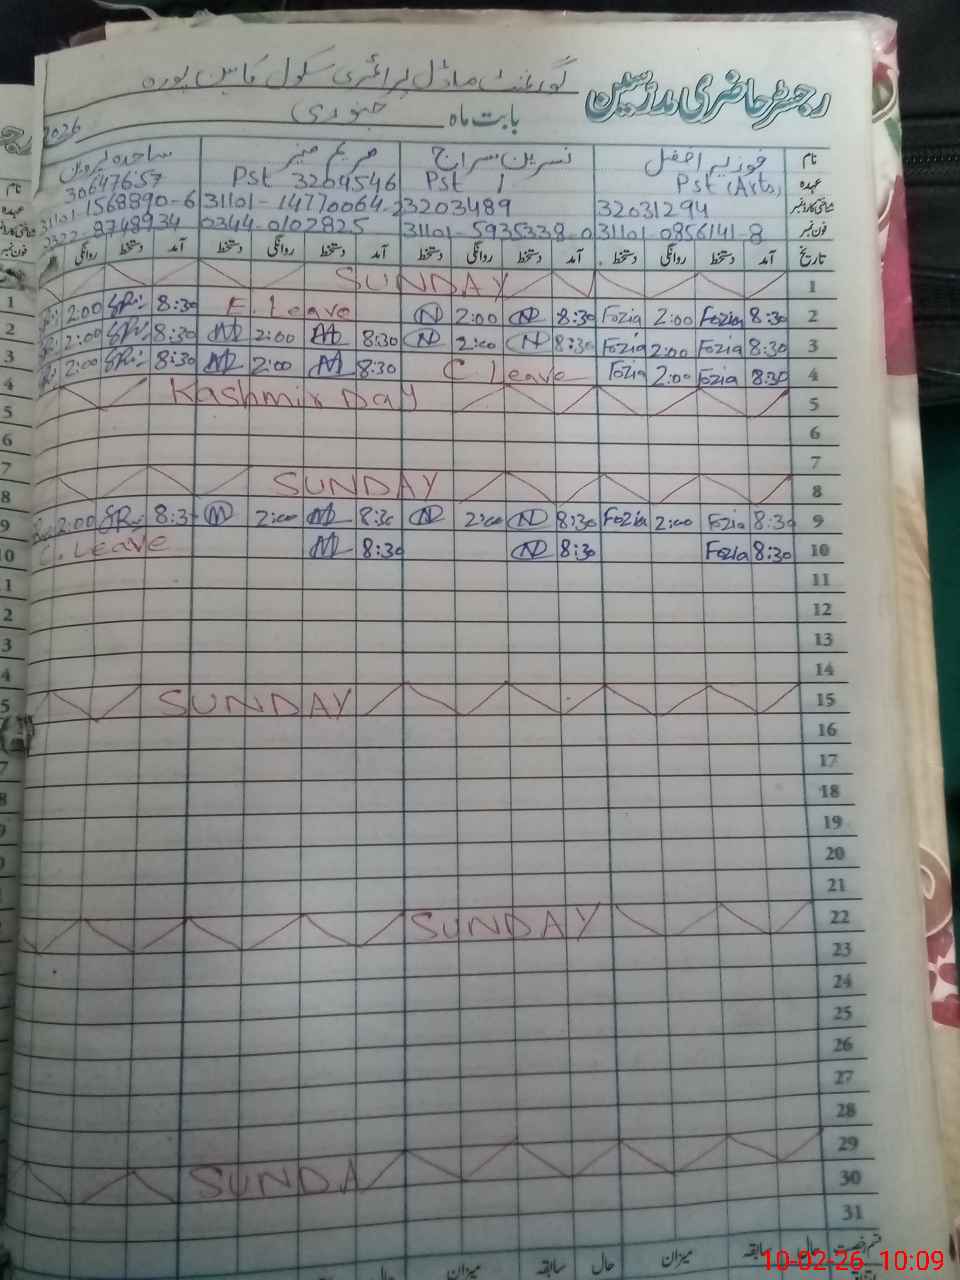 رجسٹر حاضری مدرسین گورنمنٹ ماڈل پرائمری سکول
بابت ماہ جنوری 2026
نام فوزیہ افضل نسرین سراج مریم منیر ساجدہ پروین
عہدہ Pst (Arts) Pst Pst 3204546 30647657
شناختی کارڈ نمبر 32031294 23203489 31101-1568890-6
فون نمبر 31101-0856141-8 31101-5935338-0 0344-0102825
تاریخ آمد دستخط روانگی دستخط آمد دستخط روانگی دستخط آمد دستخط روانگی دستخط آمد دستخط روانگی
1 SUNDAY
2 8:30 Fozia 2:00 Fozia 8:30 N 2:00 N E. Leave 8:30 2:00
3 8:30 Fozia 2:00 Fozia 8:30 N 2:00 N 8:30 M 2:00 M 8:30 2:00
4 8:30 Fozia 2:00 Fozia C. Leave 8:30 M 2:00 M 8:30 2:00
5 Kashmir Day
6
7
8 SUNDAY
9 8:30 Fozia 2:00 Fozia 8:30 N 2:00 N 8:30 M 2:00 M 8:3 2:00
10 8:30 Fozia 8:30 N 8:30 M C. Leave
11
12
13
14
15 SUNDAY
16
17
18
19
20
21
22 SUNDAY
23
24
25
26
27
28
29
30 SUNDA
31
قسم رخصت حال سابقہ میزان حال سابقہ میزان
10-02-26 10:09